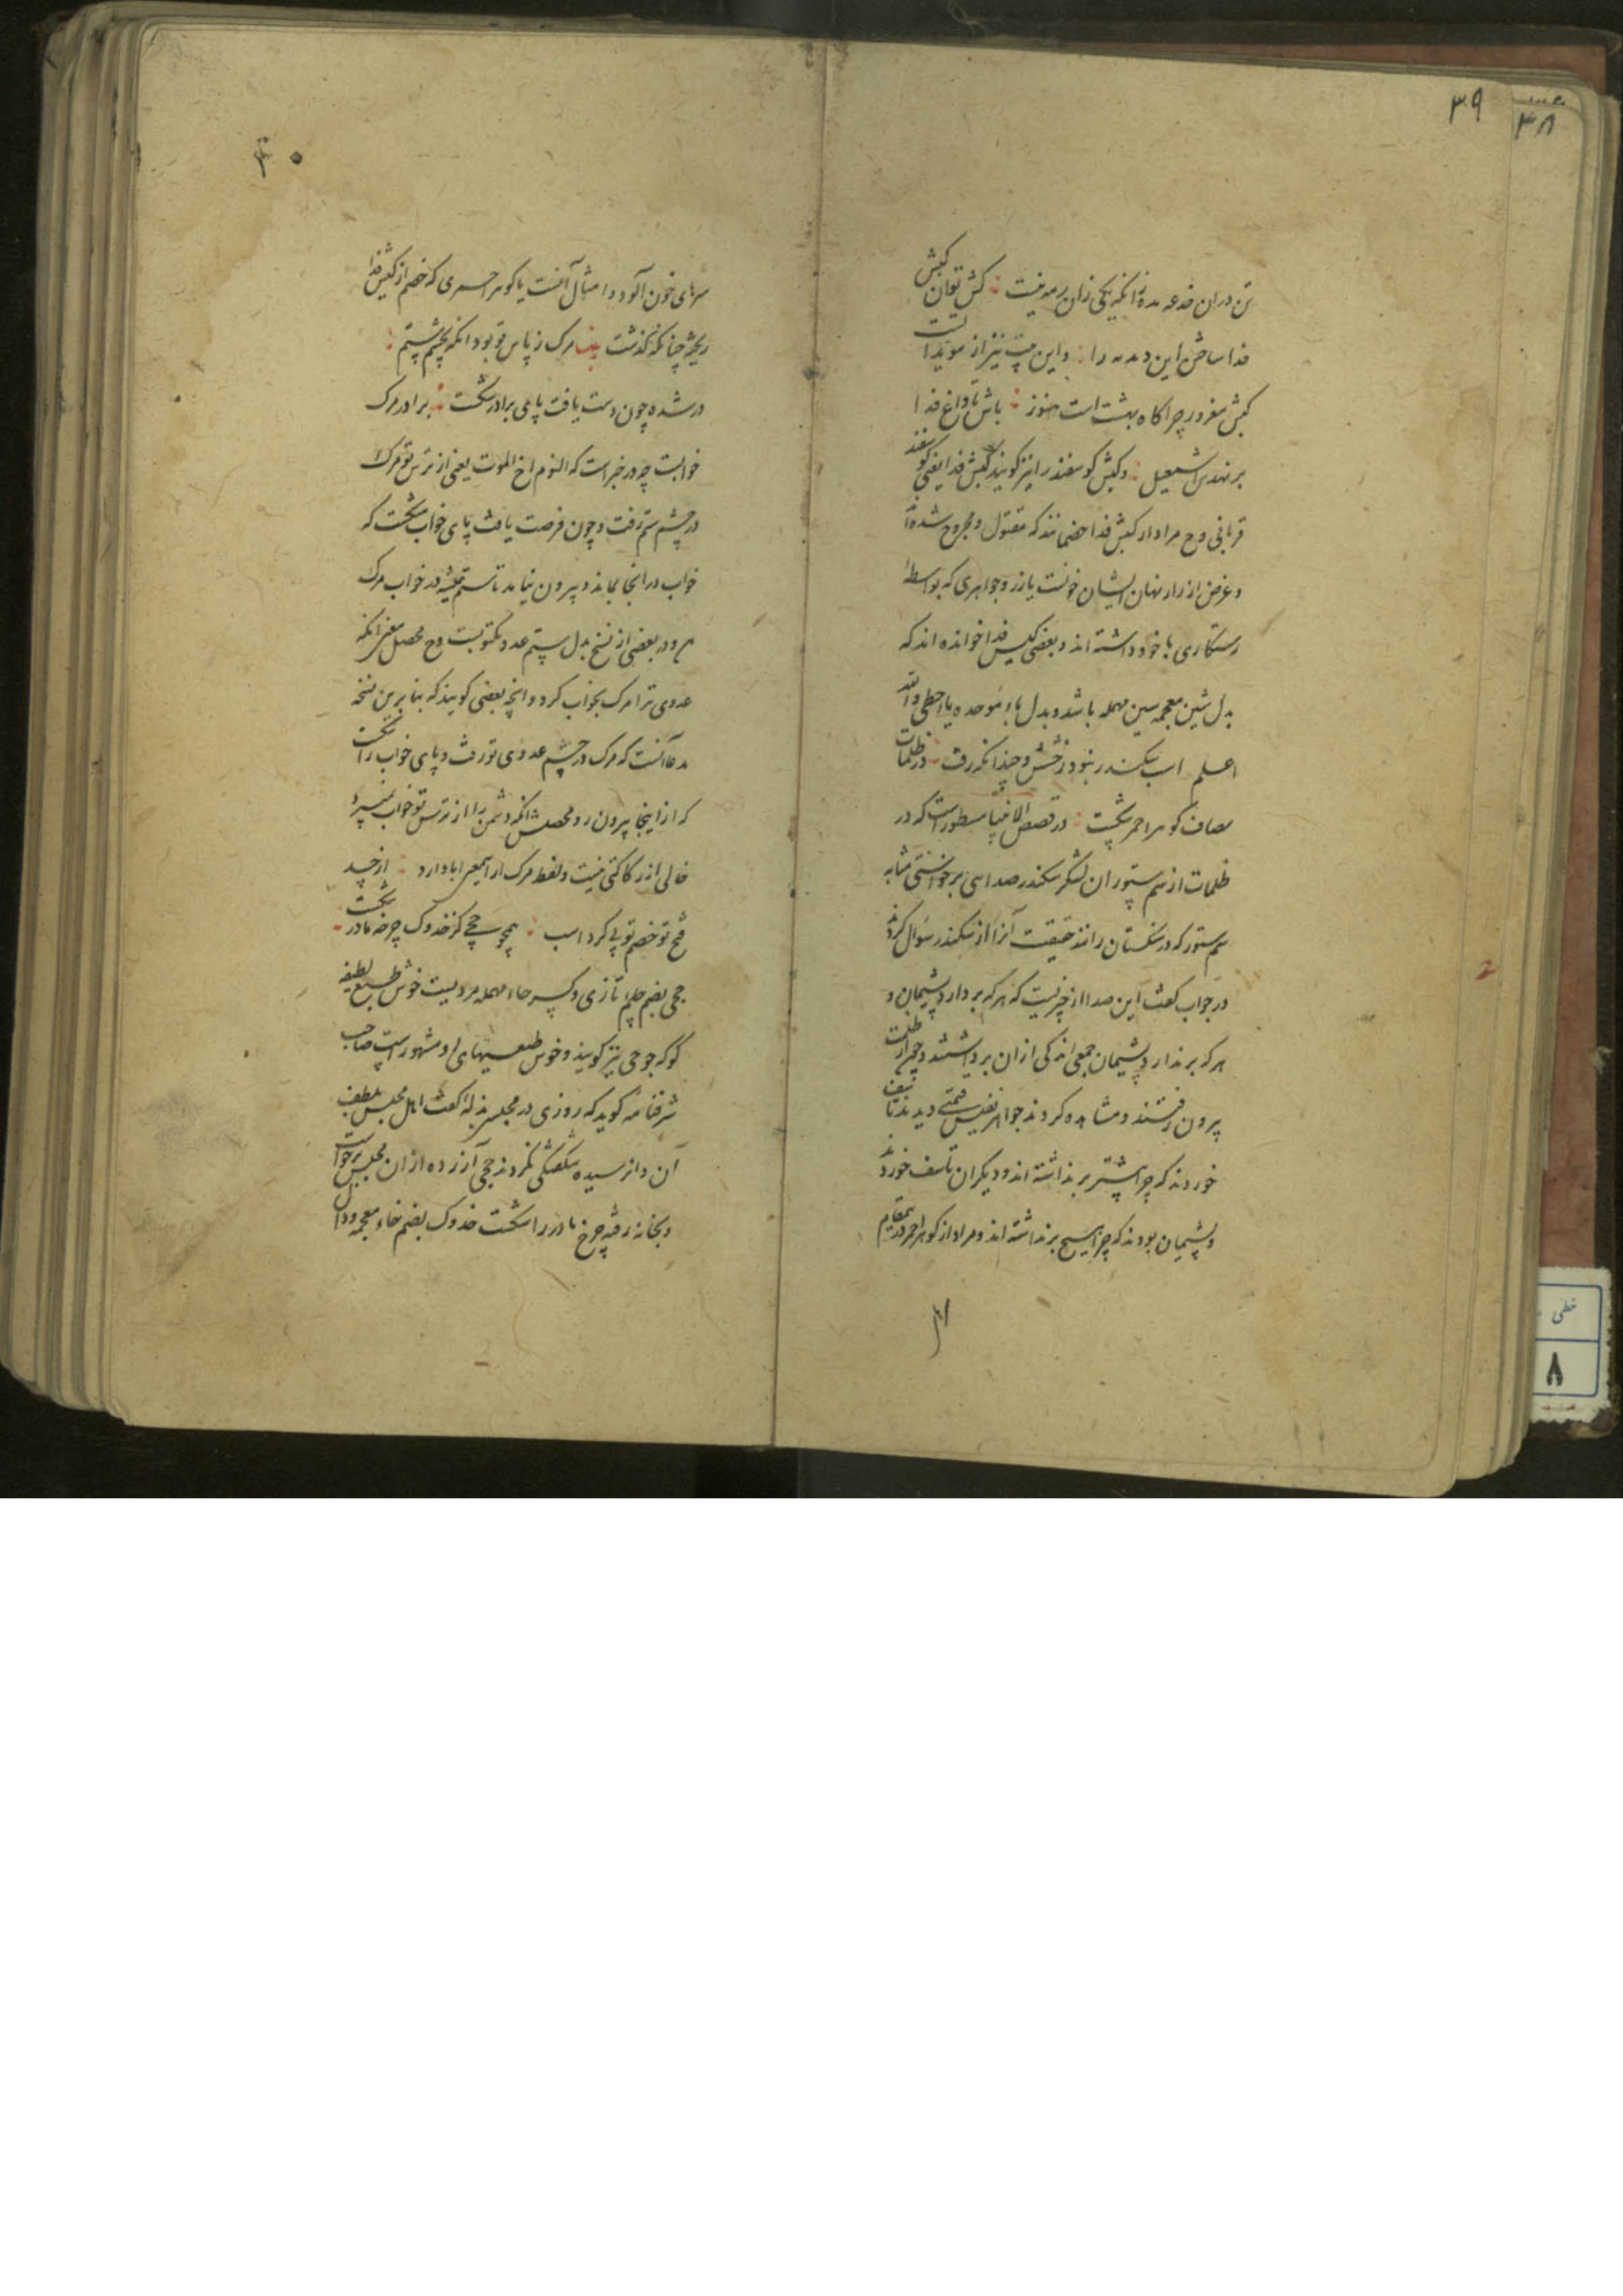 ۳۹
۳۸
تن در ان خدعه مده زانکه یکی زان رمه نیست کش توان کبش
فدا ساختن این دمدمه را و این بیت نیز از مویدات
کبش مغرور چراکاه بهشت است هنوز باش تا داغ فدا
بر نهدش اسمعیل و کبش کوسفند را نیز کویند کبش فدا یعنی کوسفند
قربانی و ح مراد از کبش فدا خصمانند که مقتول و مجروح شده‌اند
و غرض از راز نهان ایشان خونست یا زر و جواهری که بواسطهٔ
رستکاری با خود داشته اند و بعضی کیس فدا خوانده اند که
بدل شین معجمه سین مهمله باشد و بدل باء موحده یا حطی والله
اعلم اسب سکندر نبود رخشش و چندانکه رفت در ظلمات
مصاف کوهر احمر شکست در قصص الانبیا مسطور است که در
ظلمات از سم ستوران لشکر سکندر صدایی برخواستی مثابه
سم ستور که در سنکستان رانند حقیقت آنرا از سکندر سوال کردند
در جواب کفت این صدا از چیزیست که هر که بردارد پشیمان و
هر که برندارد پشیمان جمعی اندکی از ان برداشتند و چون از ظلمت
بیرون رفتند و مشاهده کردند جواهر نفیس قیمتی دیدند تاسف
خوردند که چرا بیشتر برنداشته اند و دیکران تاسف خوردند
و پشیمان بودند که چرا هیچ برنداشته اند و مراد از کوهر احمر در مقام
۴۰
سرهای خون آلود و امثال آنست یا کوهر احمری که خصم از کبش فدا
ریخته چنانکه کذشت بیت مرک ز پاس تو بود انکه بچشم ستم
در شده چون دست یافت پای برادر شکست برادر مرک
خوابست چه در خبر است که النوم اخ الموت یعنی از ترس تو مرک
در چشم ستم رفت و چون فرصت یافت پای خواب شکست که
خواب در انجا بماند و بیرون نیامد تا ستم همیشه در خواب مرک
رود و در بعضی از نسخ بدل ستم عدو مکتوبست و ح محصل معنی انکه
عدوی ترا مرک بخواب کرد و انچه بعضی کویند که بنا برین نسخه
مدعا آنست که مرک در چشم عدوی تو رفت و پای خواب را شکست
که از اینجا بیرون رو محصلش انکه دشمن را از ترس تو خواب نمیبرد
خالی از رکاکتی نیست و لفظ مرک از این معنی ابا دارد از حسد
فتح تو خصم تو پی کرد اسب همچو جحی کز خدوک چرخه مادر شکست
جحی بضم جیم تازی و کسر حاء مهمله مردیست خوش طبع لطیفه
کو که جوحی نیز کویند و خوش طبعیهای او مشهور است صاحب
شرفنامه کوید که روزی در مجلس بذله کفت اهل مجلس بلطف
آن وانرسیده شکفتکی نکردند جحی آزرده از ان مجلس برخواست
و بخانه رفته چرخ مادر را شکست خدوک بضم خاء معجمه و دال
خطی
۸